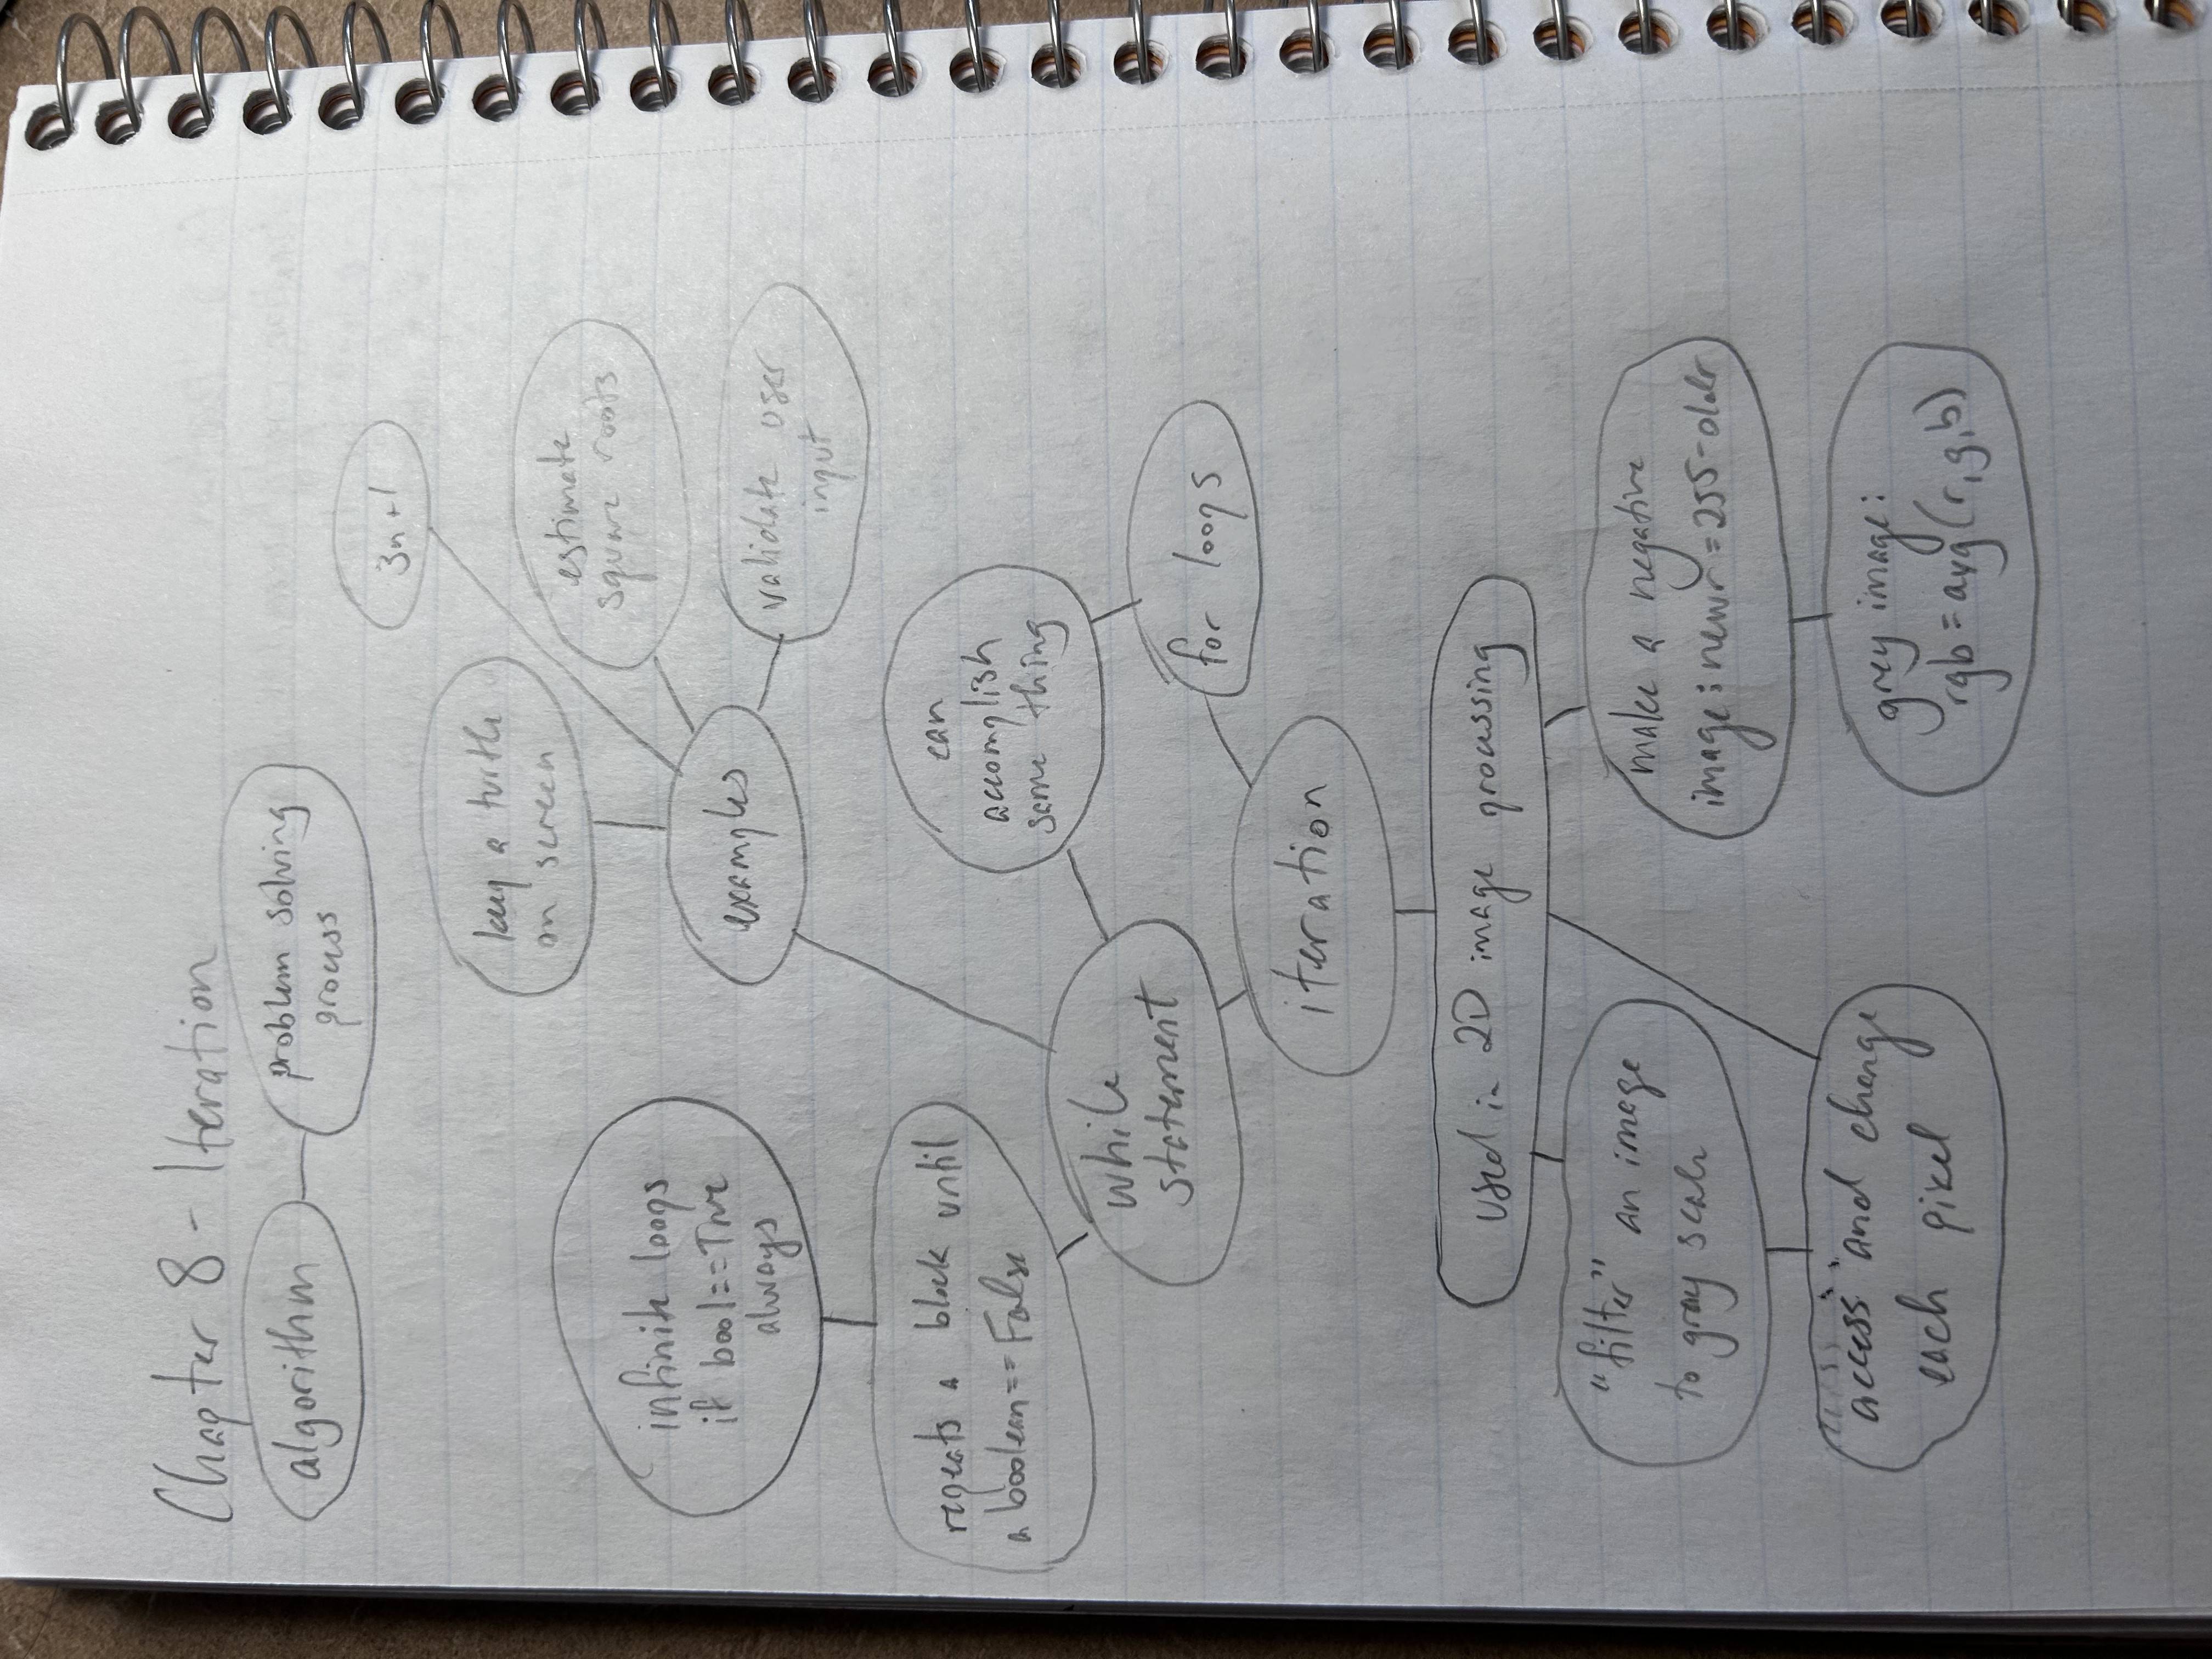 Chapter 8 - Iteration
algorithm
problem solving
process
3n+1
keep a turtle
on screen
estimate
square roots
infinite loops
if bool==True
always
examples
validate user
input
repeats a block until
a boolean==False
can
accomplish
same thing
while
statement
for loops
iteration
used in 2D image processing
"filter" an image
to gray scale
make a negative
image: newr=255-oldr
access and change
each pixel
grey image:
rgb=avg(r,g,b)